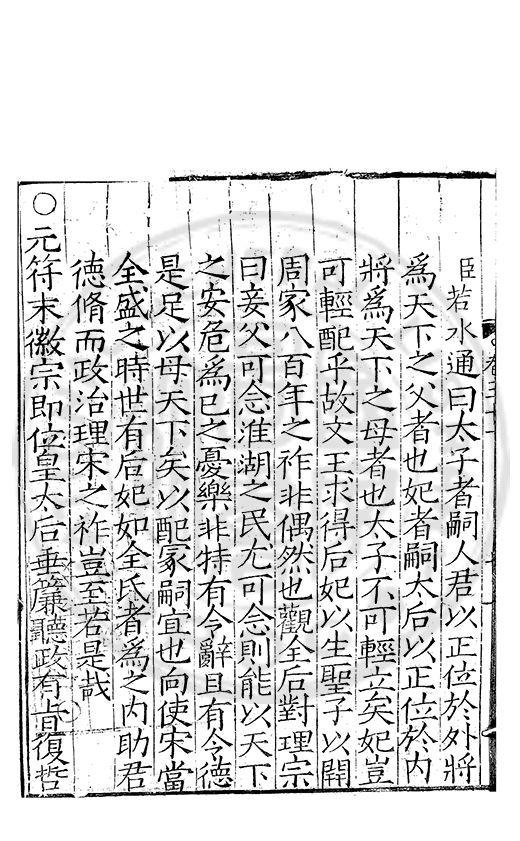 臣若水通曰太子者嗣人君以正位於外將
為天下之父者也妃者嗣太后以正位於內
將為天下之母者也太子不可輕立矣妃豈
可輕配乎故文王求得后妃以生聖子以開
周家八百年之祚非偶然也觀全后對理宗
曰妾父可念淮湖之民尤可念則能以天下
之安危為已之憂樂非特有令辭且有令德
是足以母天下矣以配冢嗣宜也向使宋當
全盛之時世有后妃如全氏者為之內助君
德脩而政治理宋之祚豈至若是哉
○元符末徽宗即位皇太后垂簾聽政有旨復哲